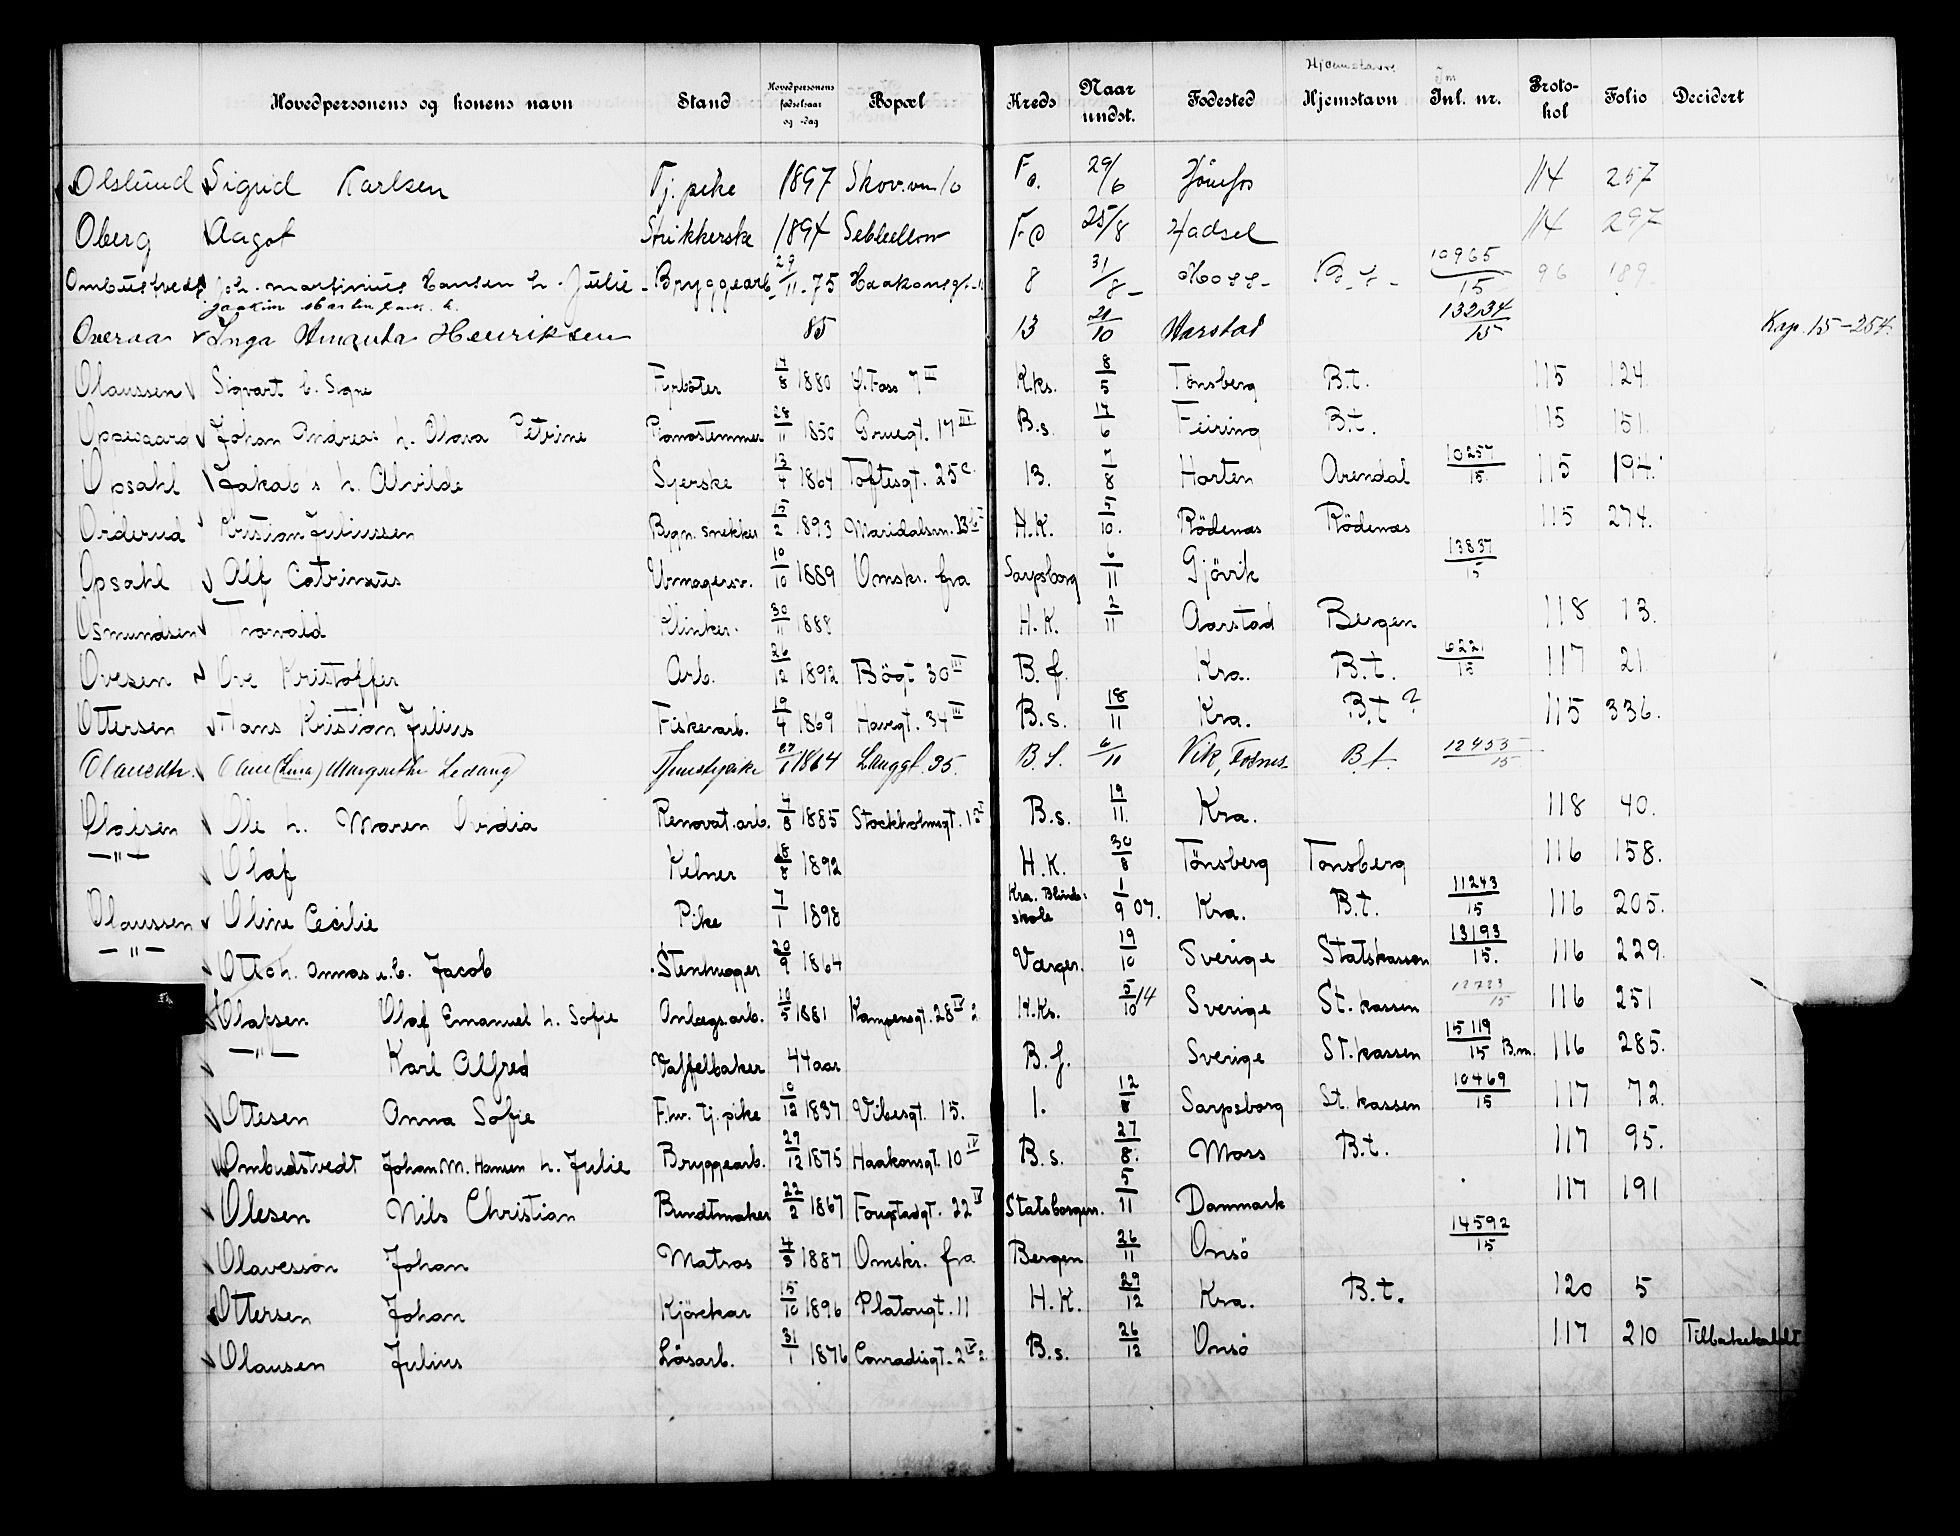 Hjemstavn
Hovedpersonens og konens navn Stand Hovedpersonens fødselsaar og -dag Bopæl Kreds Naar underst. Fødested Hjemstavn Jnl. nr. Protokol Folio Decidert
Olslund Sigrid Karlsen Tj. pike 1897 Skov.vn 10 F.o. 29/6 Hönefos 114 257
Oberg Aagot Strikkerske 1894 F.o 25/8 Hadsel 114 297
Ombustvedt Joh. Martinius Hansen h. Julie Bryggearb. 29/11-75 Haakonsgt. 8 31/8 Moss B.t. 10965/15 96 189
Overaa Inga Henriksen 85 13 21/10 Harstad 13234/15 Kap. 15-254.
Olaussen Sigvart h. Signe Fyrböter 17/8 1880 7 III K.ks. 8/5 Tönsberg B.t. 115 124.
Oppegaard Johan Andreas h. Olava Petrine Pianostemmer 28/11 1850 Gruegt. 17 III B.s. 17/6 Feiring B.t. 115 151.
Opsahl Jakobs h. Alvilde Syerske 13/4 1864 Toftesgt. 25 c. 13. 7/8 Horten Arendal 10257/15 115 194.
Orderud Kristian Juliussen Bygn. snekker 15/2 1893 Maridalsvn. H.K. 5/10. Rödenæs Rödenæs 115 274.
Opsahl Alf Catrinus Urmagersv. 10/10 1889 Omskr. fra Sarpsborg 6/11 Gjövik 13837/15
Osmundsen Trovald Klinker. 30/11 1888 H.K. 2/11 Aarstad Bergen 118 13.
Ovesen Ove Kristoffer Arb. 26/12 1892 Bögt 30 III B.f. Kra. B.t. 6221/15 117 21.
Ottersen Hans Kristian Julius Fiskerarb. 19/4 1869 Havgt. 34 III B.s. 18/11 Kra. B.t? 115 336.
Olausdtr. Oline (Lina) Margrethe Ledang Tjenestepike 27/6 1864 Langgt. 35. B.S. 6/11 Vik, Fosnes B.t. 12455/15
Olaisen Ole h. Maren Ovidia Renovat.arb. 4/8 1885 Stockholmsgt. B.s. 19/11. Kra. 118 40.
—"— Olaf Kelner 8/8 1892 H.K. 30/8 Tönsberg Tonsberg 116 158.
Olaussen Oline Cecilie Pike 7/1 1898 Kra. Blindeskole 1/9 07. Kra. B.t. 11243/15 116 205.
—"— Otto h. Annas e.b. Jacob Stenhugger 20/9 1864 Værger. 19/10 Sverige Statskassen 13193/15. 116 229.
Olafsen Olaf Emanuel h. Sofie Anlægsarb. 10/5 1881 Kampensgt. 28 IV 2 K.Ks. 5/10 14 Sverige St. kassen 12723/15 116 251
—"— Karl Alfred Vaffelbaker 44 aar B.f. Sverige St. kassen 15119/15 B.m. 116 285.
Ottesen Anna Sofie F.hv. tj. pike 10/12 1837 Vibesgt. 15. 1. 12/8 Sarpsborg St. kassen 10469/15 117 72.
Ombudstvedt Johan M. Hansen h. Julie Bryggearb. 29/12 1875 Haakonsgt. 10 IV B.s. 27/8. Moss B.t. 117 95.
Olesen Nils Christian Bundtmaker 22/2 1867 Fougstadgt. 22 IV Statsborgers. 5/11 Danmark 117 191
Olavesson Johan Matros 4/3 1887 Omskr. fra Bergen 26/11 Onsö 14592/15
Ottersen Johan Kjörekar 15/10 1896 Platougt. 11 H.K. 29/12 Kra. B.t. 120 5
Olausen Julius Lösarb. 31/1 1876 Conradisgt. 2 IV 2. B.s. 26/12 Onsö 117 210 Tilbakekaldt